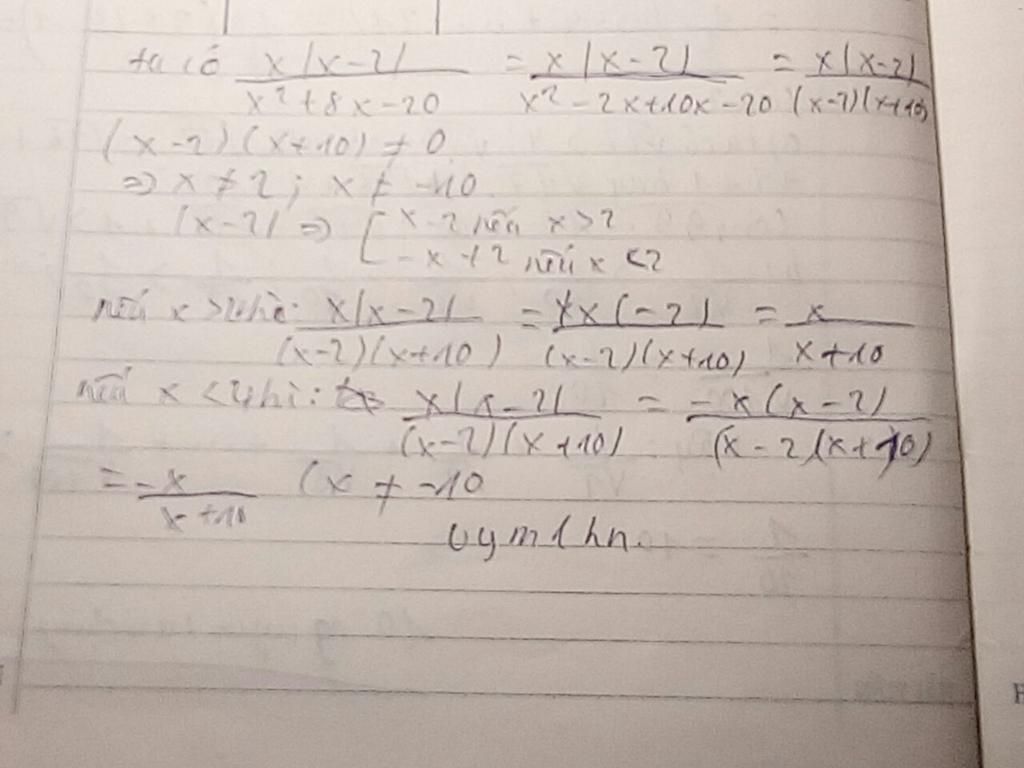 ta có x|x-2| / x²+8x-20 = x|x-2| / x²-2x+10x-20 = x|x-2| / (x-2)(x+10)
(x-2)(x+10) ≠ 0
=> x ≠ 2; x ≠ -10
|x-2| => [ x-2 nếu x>2
-x+2 nếu x<2
nếu x>2 thì: x|x-2| / (x-2)(x+10) = x(-2) / (x-2)(x+10) = x / x+10
nếu x<2 thì: x|x-2| / (x-2)(x+10) = -x(x-2) / (x-2(x+10)
= -x / x+10 (x ≠ -10